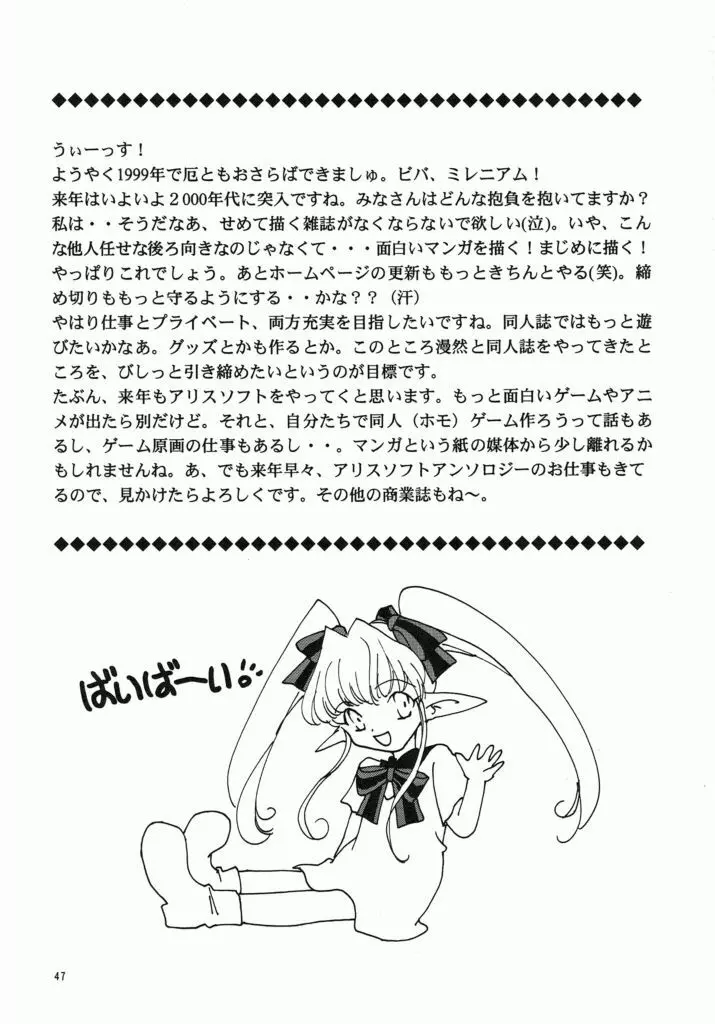 うぃーっす！
ようやく1999年で厄ともおさらばできましゅ。ビバ、ミレニアム！
来年はいよいよ２000年代に突入ですね。みなさんはどんな抱負を抱いてますか？
私は・・そうだなあ、せめて描く雑誌がなくならないで欲しい(泣)。いや、こん
な他人任せな後ろ向きなのじゃなくて・・・面白いマンガを描く！まじめに描く！
やっぱりこれでしょう。あとホームページの更新ももっときちんとやる(笑)。締
め切りももっと守るようにする・・かな？？（汗）
やはり仕事とプライベート、両方充実を目指したいですね。同人誌ではもっと遊
びたいかなあ。グッズとかも作るとか。このところ漫然と同人誌をやってきたと
ころを、びしっと引き締めたいというのが目標です。
たぶん、来年もアリスソフトをやってくと思います。もっと面白いゲームやアニ
メが出たら別だけど。それと、自分たちで同人（ホモ）ゲーム作ろうって話もあ
るし、ゲーム原画の仕事もあるし・・。マンガという紙の媒体から少し離れるか
もしれませんね。あ、でも来年早々、アリスソフトアンソロジーのお仕事もきて
るので、見かけたらよろしくです。その他の商業誌もね〜。
ばいばーい。
47